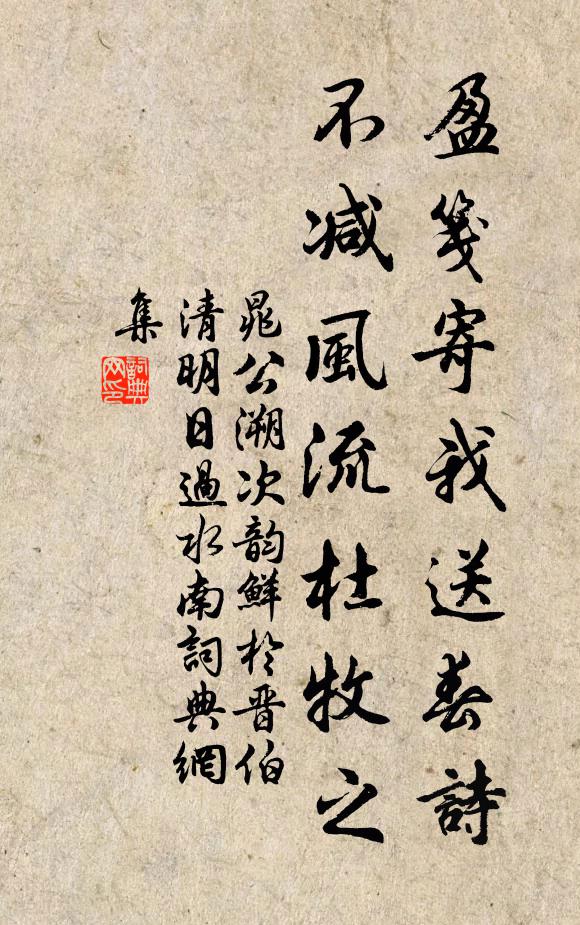 盈箋寄我送春詩
不减風流杜牧之
晁公溯次韵鮮於晋伯
清明日過水南詞典網
集
詞典网印